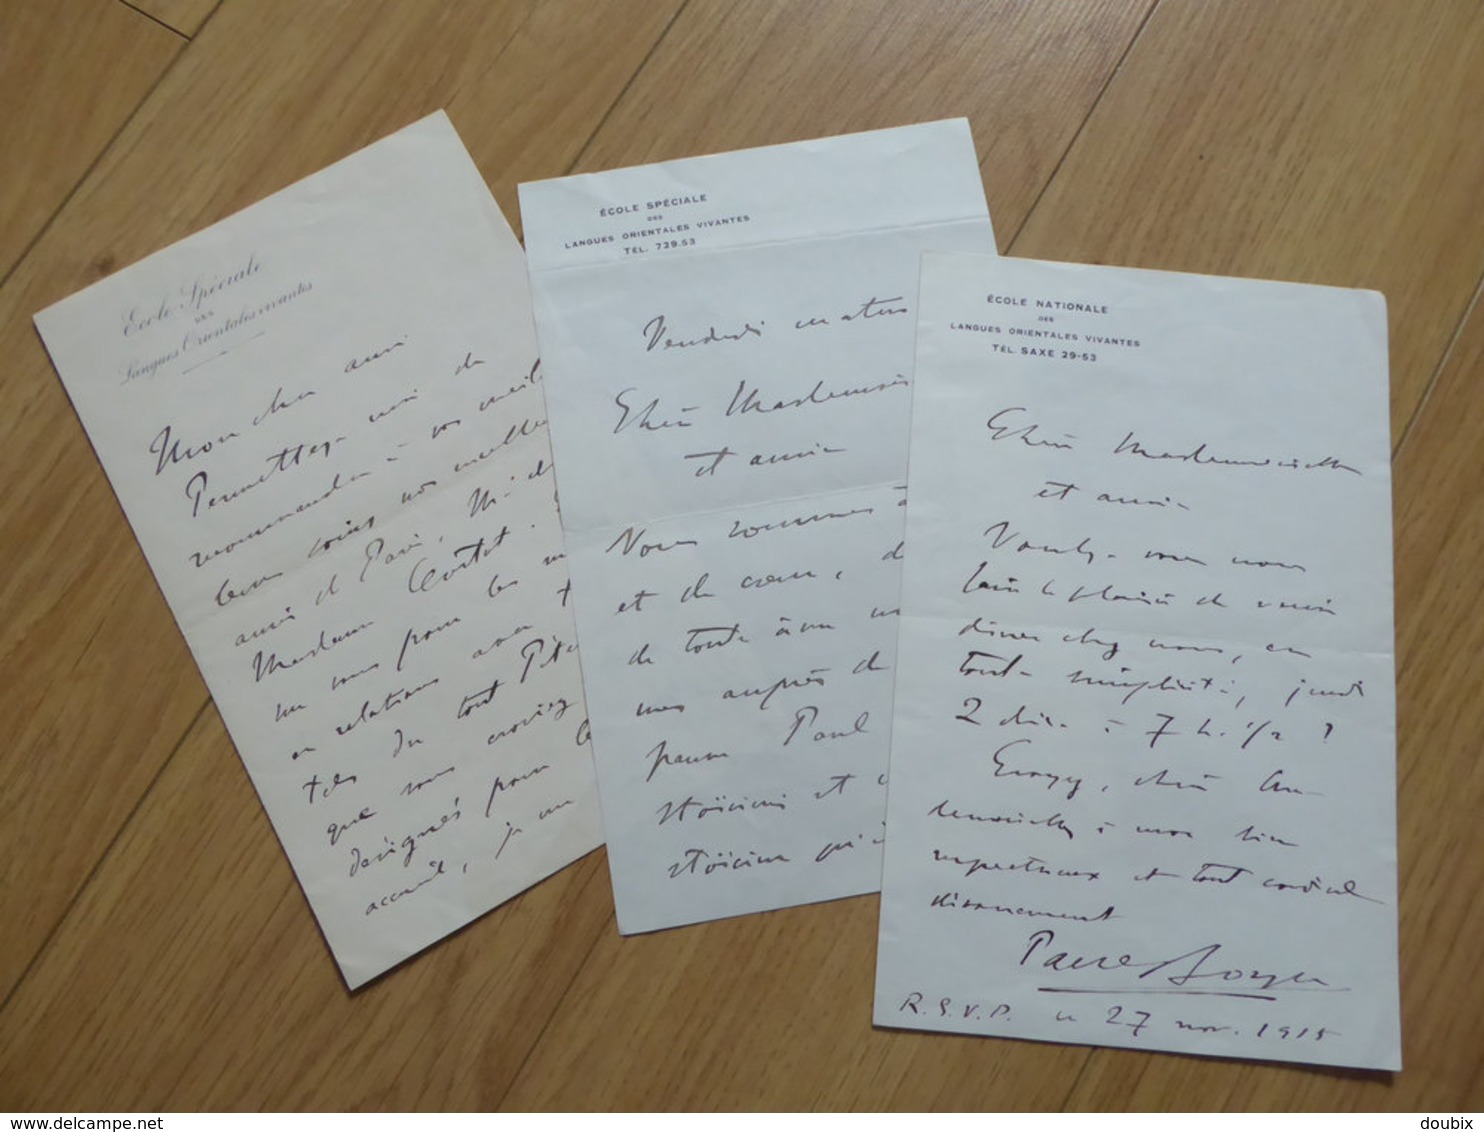 Ecole Spéciale
DES
Langues Orientales vivantes
Mon cher ami
Permettez-moi de
recommander à vos meil
leurs soins nos meilleurs
amis de Paris, M. et
Madame Cortot.
en relations avec
tés du tout
que vous croiriez
désignés pour
accueil, je
ÉCOLE SPÉCIALE
DES
LANGUES ORIENTALES VIVANTES
TÉL. 729.53
Vendredi matin
Chère Mademoiselle
et amie
Nous sommes
et de cœur, d
de toute âme
mes auprès de
pauvre Paul
stoïcien et
stoïcien qu'i
ÉCOLE NATIONALE
DES
LANGUES ORIENTALES VIVANTES
TÉL. SAXE 29-53
Chère Mademoiselle
et amie
Voulez-vous nous
faire le plaisir de venir
dîner chez nous, en
toute simplicité, jeudi
2 déc. à 7 h. 1/2 ?
Croyez, chère Ma-
demoiselle, à mon bien
respectueux et tout cordial
dévouement
Paul Boyer
R.S.V.P. ce 27 nov. 1915
delcampe.net
doubix